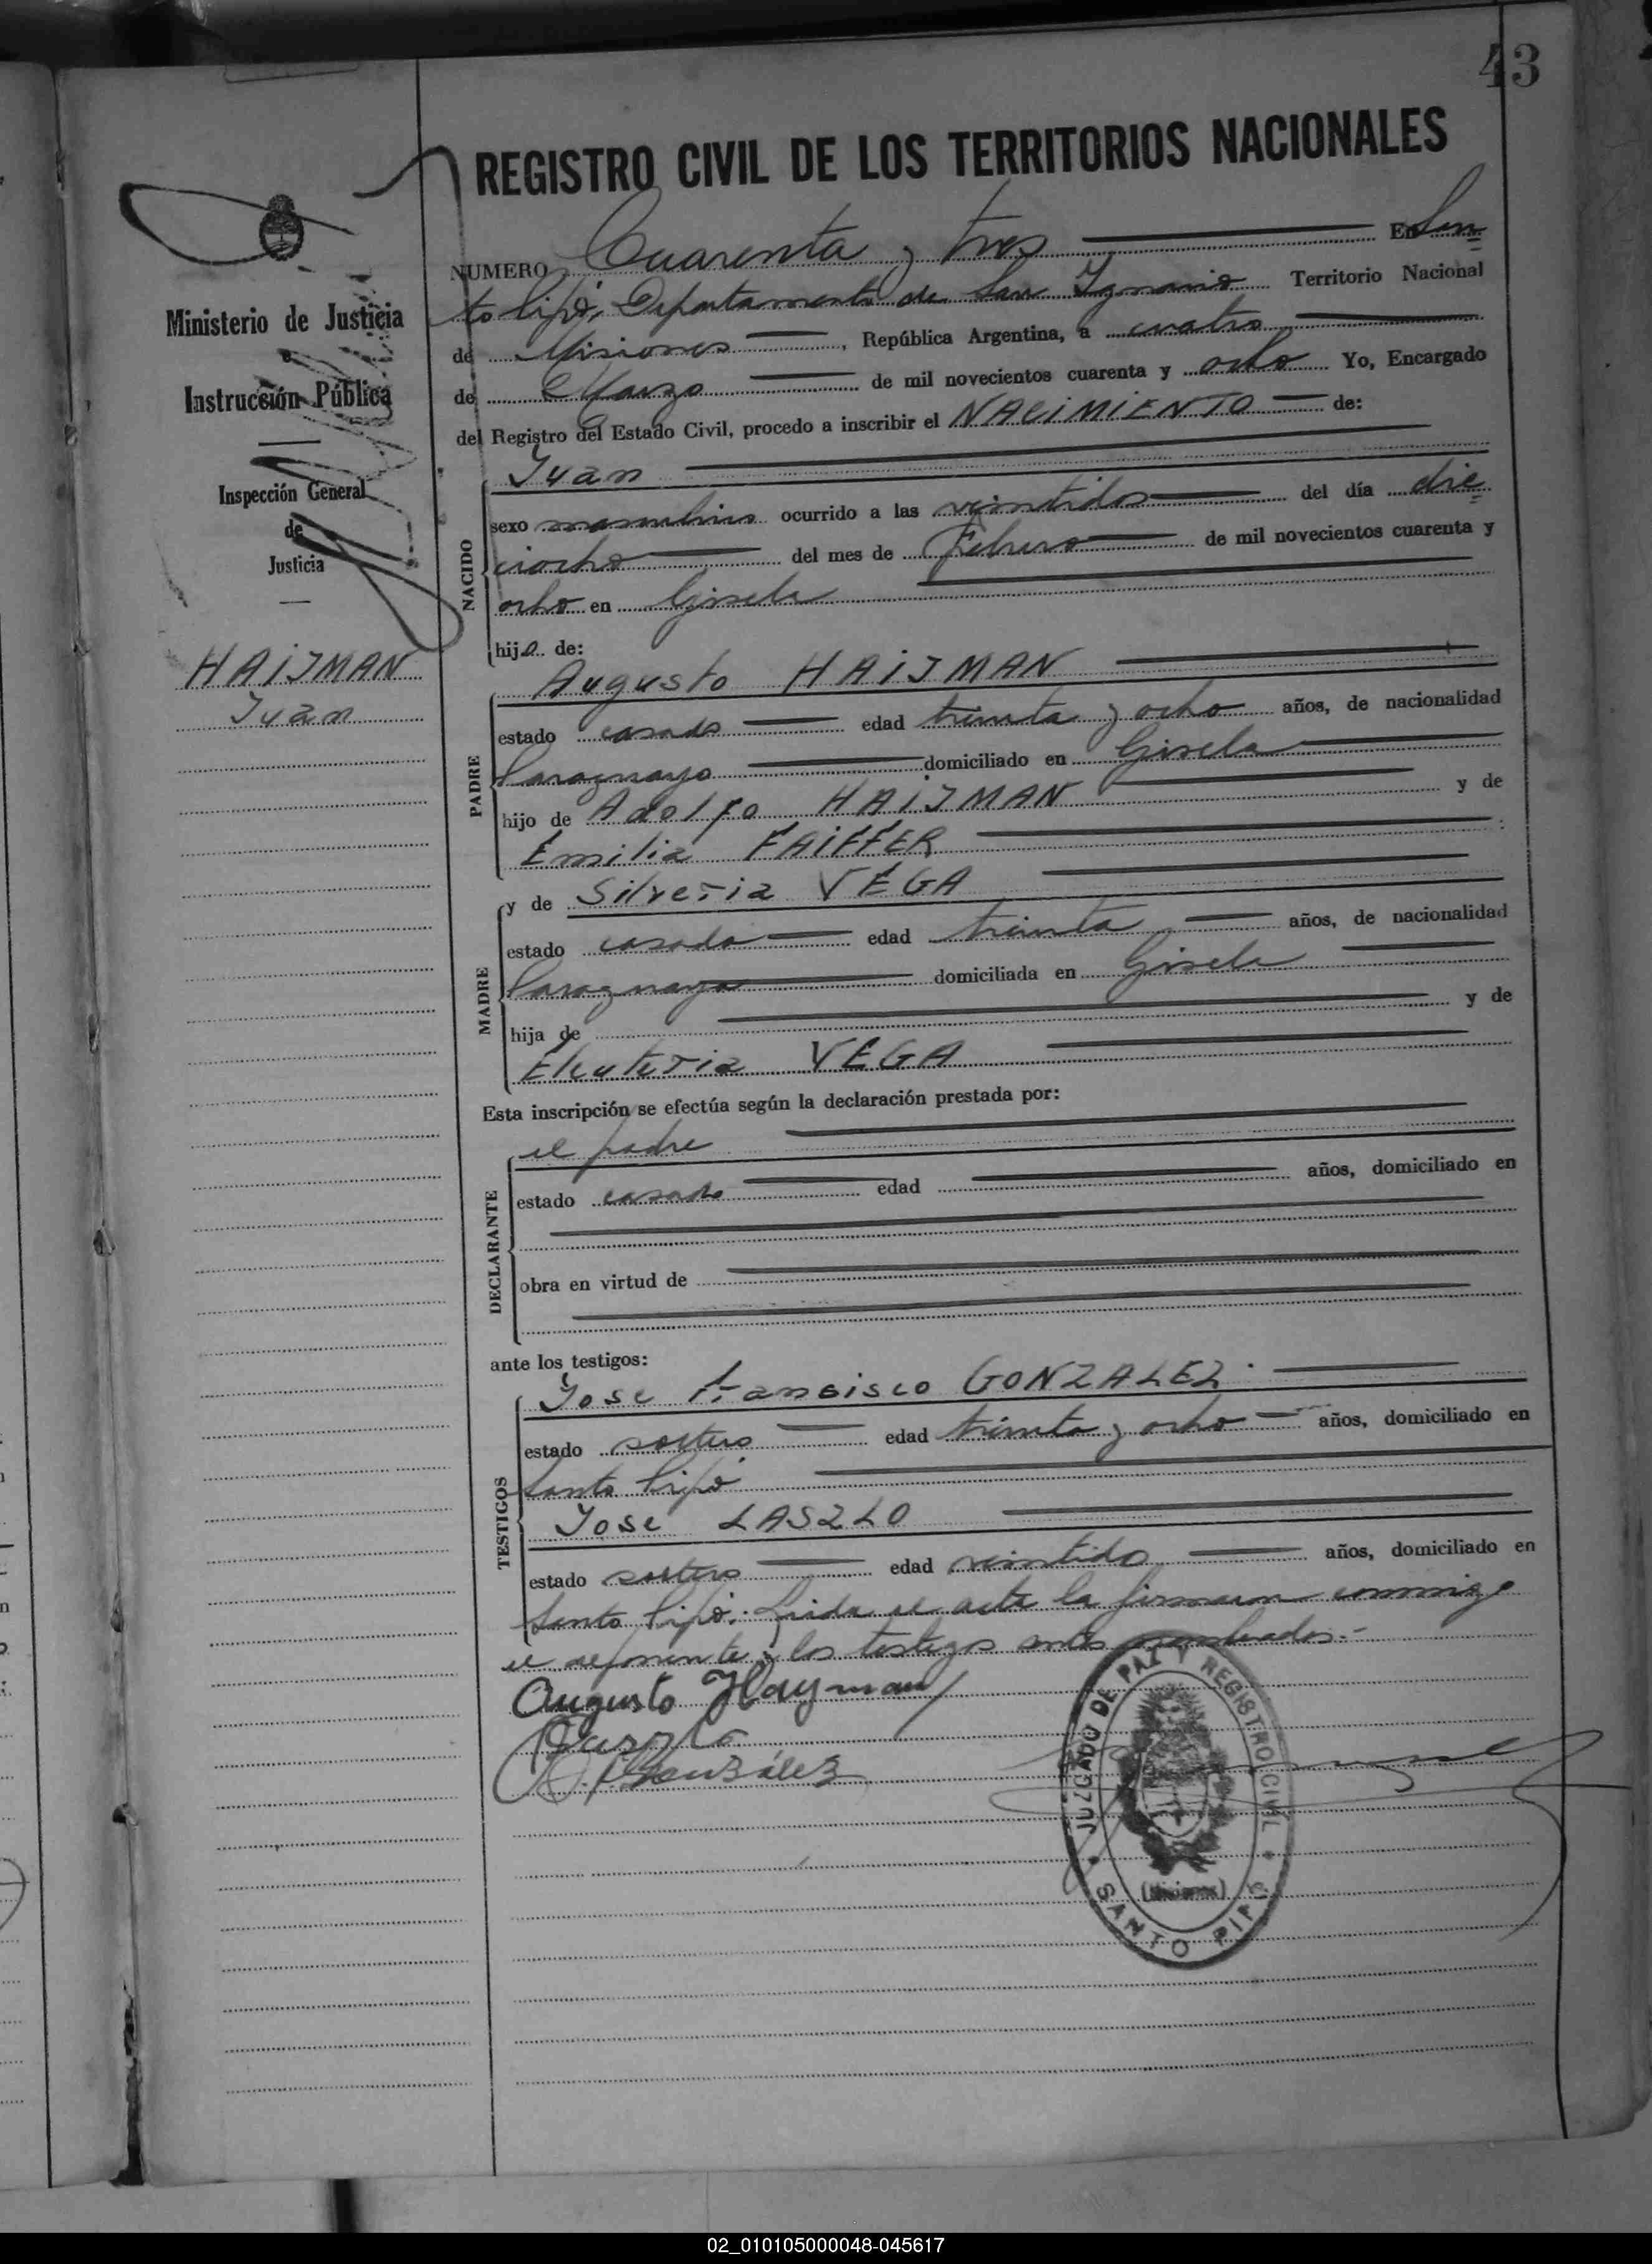 43
REGISTRO CIVIL DE LOS TERRITORIOS NACIONALES
Ministerio de Justicia
e
Instrucción Pública
Inspección General
de
Justicia
HAIJMAN
Juan
NUMERO Cuarenta y tres En San
to Pipó, Departamento de San Ignacio Territorio Nacional
de Misiones, República Argentina, a cuatro
de Marzo de mil novecientos cuarenta y ocho Yo, Encargado
del Registro del Estado Civil, procedo a inscribir el NACIMIENTO de:
NACIDO
Juan
sexo masculino ocurrido a las veintidos del día die
ciocho del mes de Febrero de mil novecientos cuarenta y
ocho en Gisela
hijo de:
PADRE
Augusto HAIJMAN
estado casado edad treinta y ocho años, de nacionalidad
Paraguayo domiciliado en Gisela
hijo de Adolfo HAIJMAN y de
Emilia FAIFFER
MADRE
y de Silveria VEGA
estado casada edad treinta años, de nacionalidad
Paraguaya domiciliada en Gisela
hija de y de
Eleuteria VEGA
Esta inscripción se efectúa según la declaración prestada por:
DECLARANTE
el padre
estado casado edad años, domiciliado en
obra en virtud de
ante los testigos:
TESTIGOS
Jose Francisco GONZALEZ
estado soltero edad treinta y ocho años, domiciliado en
Santo Pipó
Jose LASZLO
estado soltero edad veintido años, domiciliado en
Santo Pipó. Leida el acta la firmaron conmigo
el deponente y los testigos antes nombrados.-
Augusto Hayman
J. F. González
JUZGADO DE PAZ Y REGISTRO CIVIL
(Misiones)
SANTO PIPÓ
02_010105000048-045617